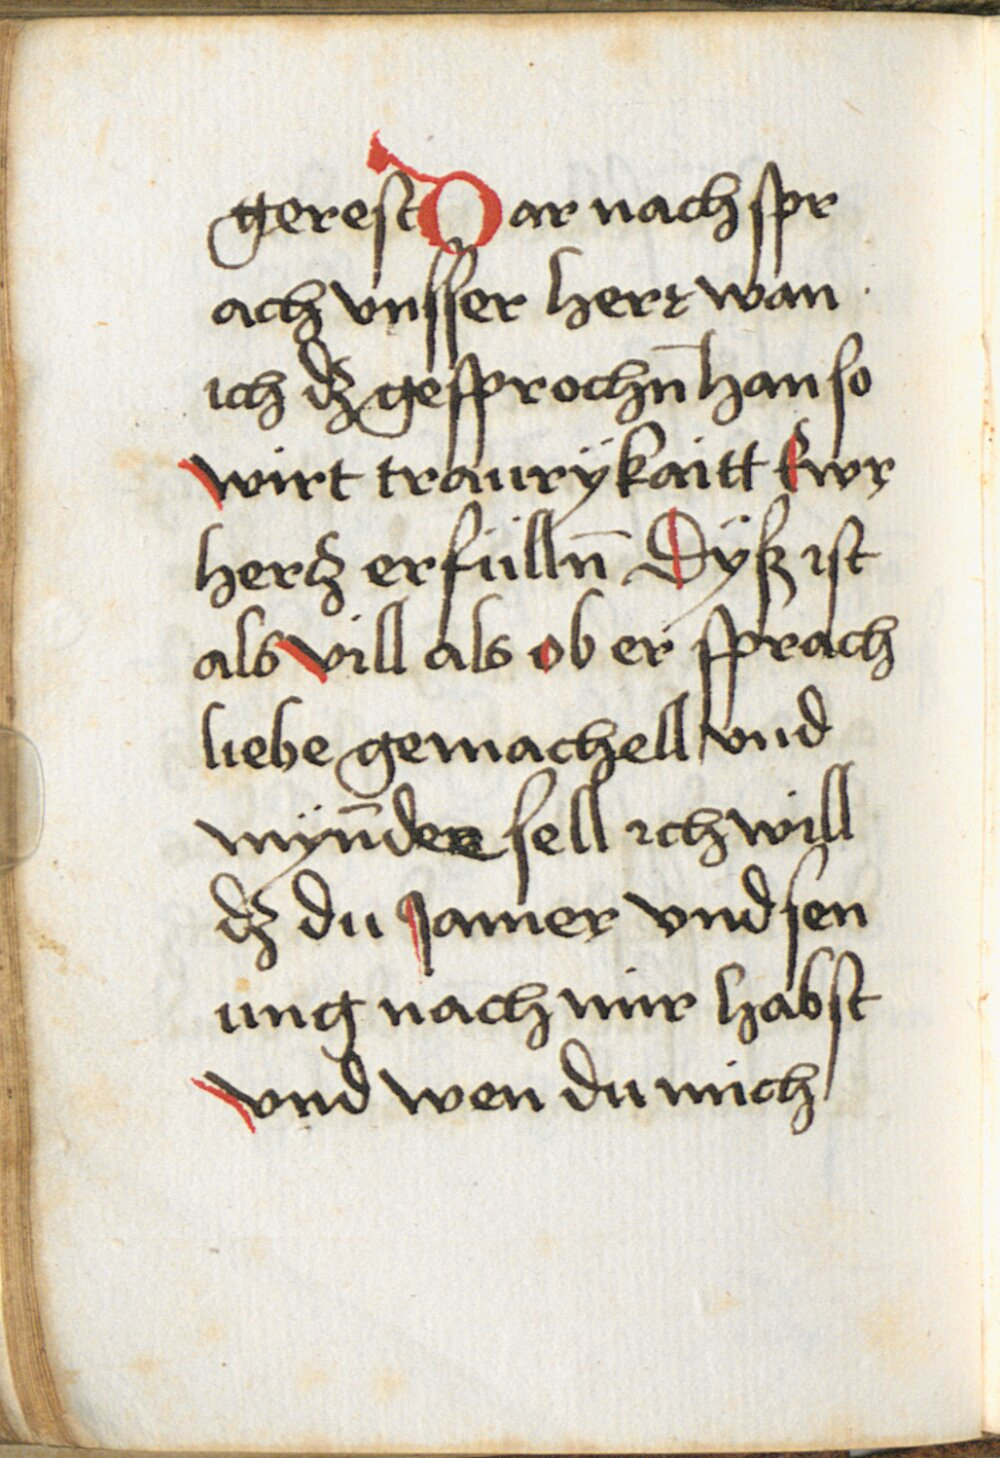 gerest Dar nach spr
ach vnsser herr wan
ich dz gesprochn̄ han so
wirt traurÿkaitt Ewr
hertz erfülln̄ Dÿsz ist
als vill als ob er sprach
liebe gemachell vnd
mÿn̄dee sell ich will
dz du Jamer vnd sen
ung nach mir habst
vnd wen du mich